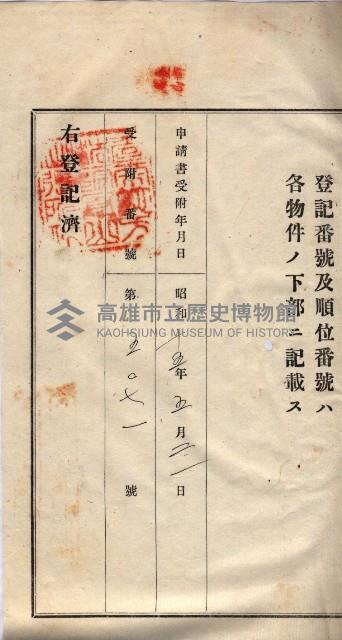 登記番號及順位番號ハ
各物件ノ下部ニ記載ス
申請書受附年月日 昭和十五年五月二一日
受附番號 第五〇七一號
右登記濟
高雄市立歷史博物館
KAOHSIUNG MUSEUM OF HISTORY